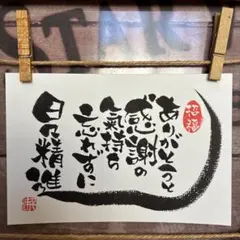 招福
ありがとうと
感謝の
気持ち
忘れずに
日々精進